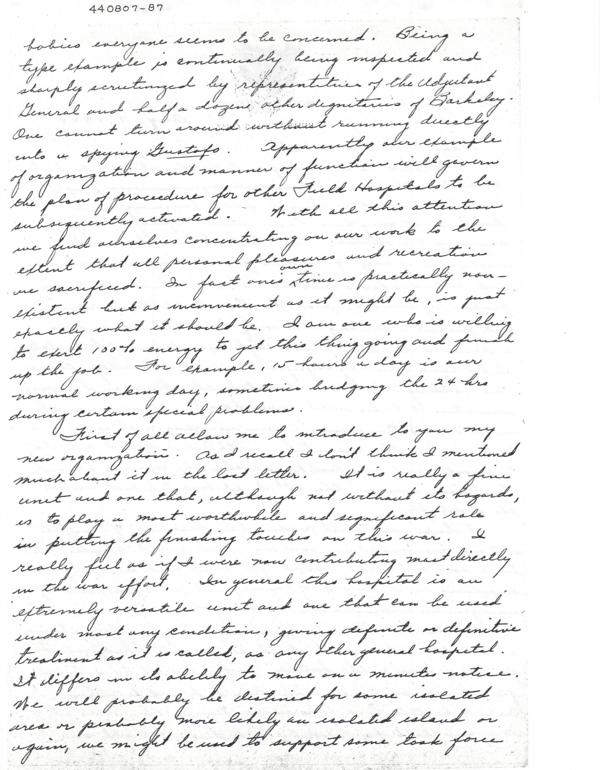 440807-87
babies everyone seems to be concerned. Being a
type example is continually being inspected and
sharply scrutinized by representitives of the Adjutant
General and half a dozen other dignitaries of Barkeley.
One cannot turn around without running directly
into a spying Gustafo. Apparently our example
of organization and manner of function will govern
the plan of procedure for other Field Hospitals to be
subsequently activated. With all this attention
we find ourselves concentrating on our work to the
extent that all personal pleasures and recreation
are sacrificed. In fact one's own time is practically non-
existent but as inconvenient as it might be, is just
exactly what it should be. I am one who is willing
to exert 100% energy to get this thing going and finish
up the job. For example, 15 hours a day is our
normal working day, sometimes bridging the 24 hrs
during certain special problems.
First of all allow me to introduce to you my
new organization. As I recall I don't think I mentioned
much about it in the last letter. It is really a fine
unit and one that, although not without its hazards,
is to play a most worthwhile and significant role
in putting the finishing touches on this war. I
really feel as if I were now contributing most directly
in the war effort. In general this hospital is an
extremely versatile unit and one that can be used
under most any condition, giving definite or definitive
treatment as it is called, as any other general hospital.
It differs in its ability to move on a minutes notice.
We will probably be destined for some isolated
area or probably more likely an isolated island or
again, we might be used to support some task force